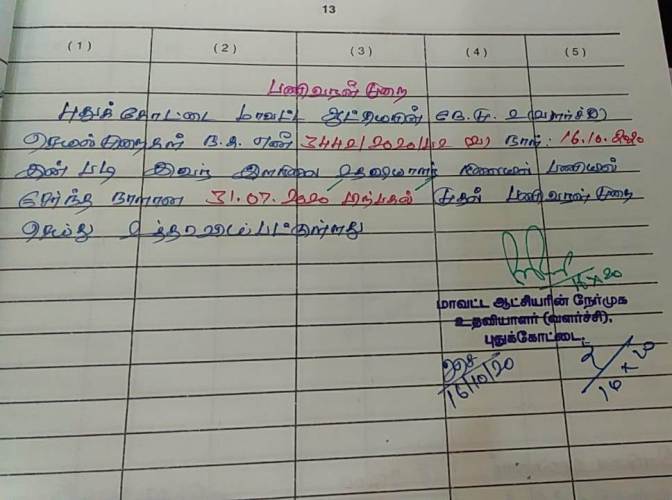 13
(1) (2) (3) (4) (5)
பணிவரன்முறை
புதுக்கோட்டை மாவட்ட ஆட்சியரின் நே.மு.உ (வளர்ச்சி)
செயல்முறைகள் ந.க. எண் 3442/2020/ நாள்: 16.10.2020
இன் படி இவர் இளநிலை உதவியாளர் பணியில்
சேர்ந்த நாளான 31.07.2020 முற்பகல் முதல் பணிவரன்முறை
செய்து உத்தரவிடப்பட்டுள்ளது
மாவட்ட ஆட்சியரின் நேர்முக
உதவியாளர் (வளர்ச்சி),
புதுக்கோட்டை.
16/10/20